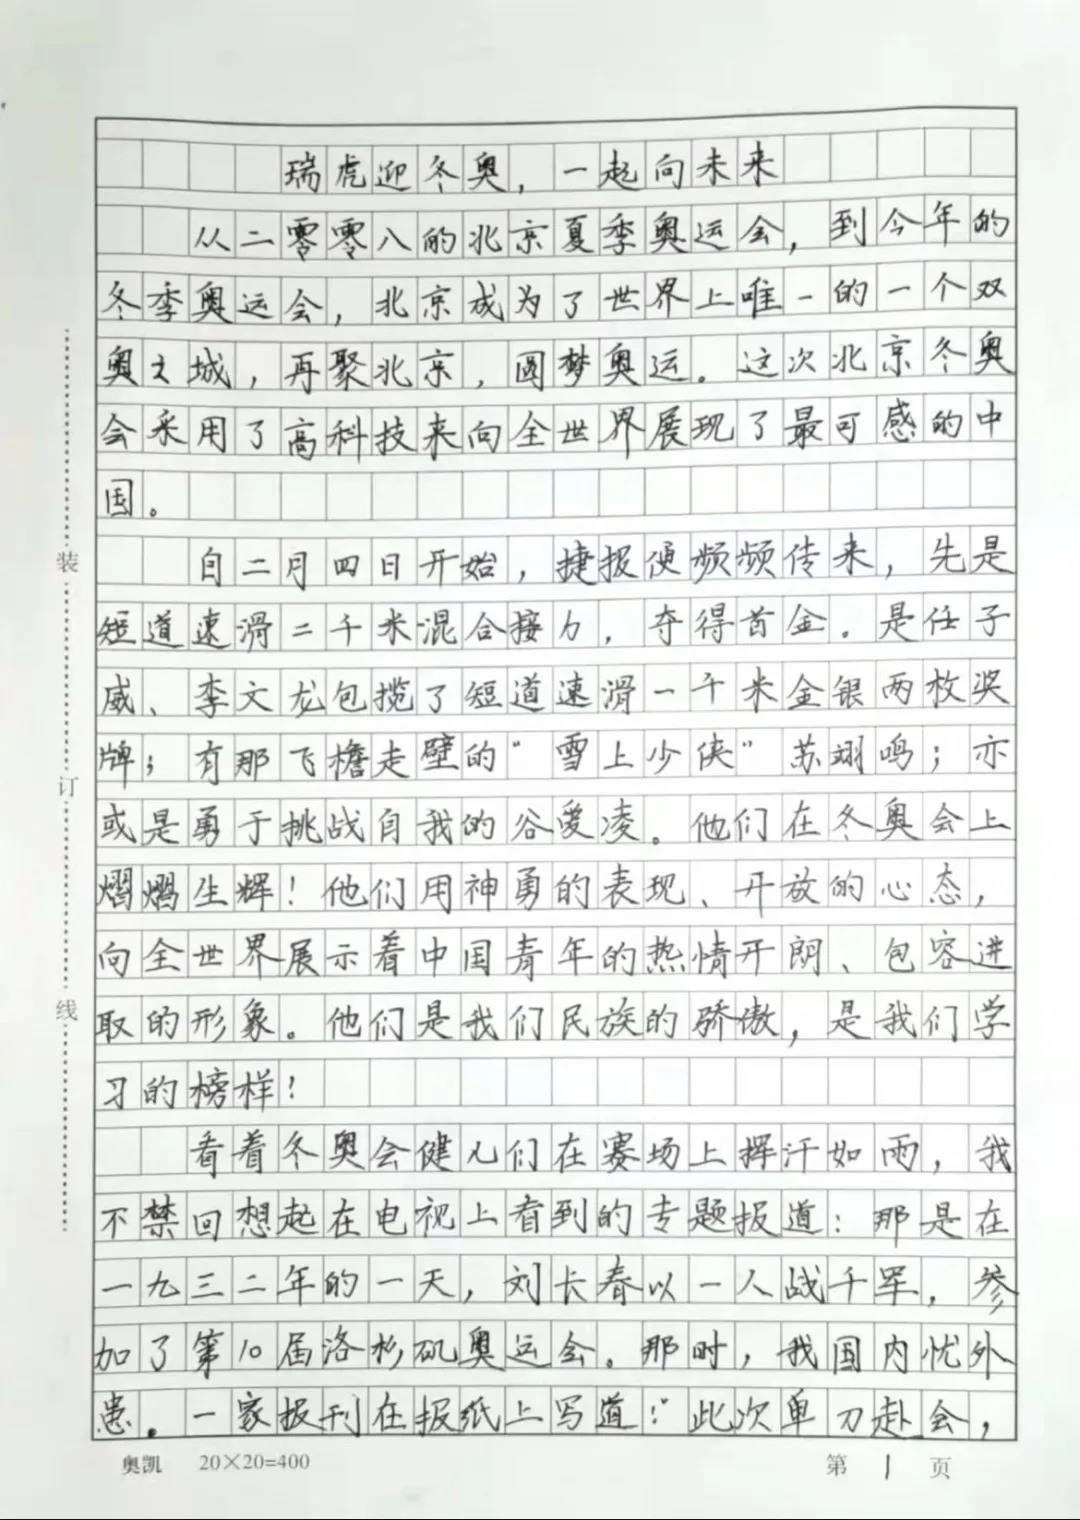 瑞虎迎冬奥，一起向未来
从二零零八的北京夏季奥运会，到今年的
冬季奥运会，北京成为了世界上唯一的一个双
奥之城，再聚北京，圆梦奥运。这次北京冬奥
会采用了高科技来向全世界展现了最可感的中
国。
自二月四日开始，捷报便频频传来，先是
短道速滑二千米混合接力，夺得首金。是任子
威、李文龙包揽了短道速滑一千米金银两枚奖
牌；有那飞檐走壁的“雪上少侠”苏翊鸣；亦
或是勇于挑战自我的谷爱凌。他们在冬奥会上
熠熠生辉！他们用神勇的表现、开放的心态，
向全世界展示着中国青年的热情开朗、包容进
取的形象。他们是我们民族的骄傲，是我们学
习的榜样！
看着冬奥会健儿们在赛场上挥汗如雨，我
不禁回想起在电视上看到的专题报道：那是在
一九三二年的一天，刘长春以一人战千军，参
加了第10届洛杉矶奥运会。那时，我国内忧外
患。一家报刊在报纸上写道：“此次单刀赴会，
装
订
线
奥凯 20×20=400
第 1 页